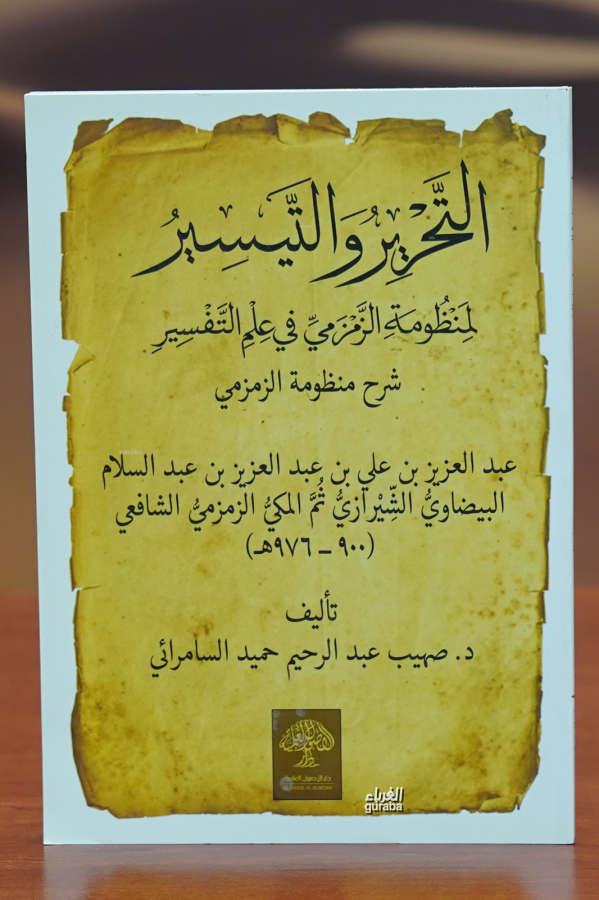 التَّحْرِيرُ وَالتَّيْسِيرُ
لِمَنْظُومَةِ الزَّمْزَمِيِّ فِي عِلْمِ التَّفْسِيرِ
شرح منظومة الزمزمي
عبد العزيز بن علي بن عبد العزيز بن عبد السلام
البيضاويُّ الشِّيْرازيُّ ثُمَّ المكيُّ الزمزميُّ الشافعي
(٩٠٠ – ٩٧٦هـ)
تأليف
د. صهيب عبد الرحيم حميد السامرائي
دار الأصول العلمية
الغرباء
guraba